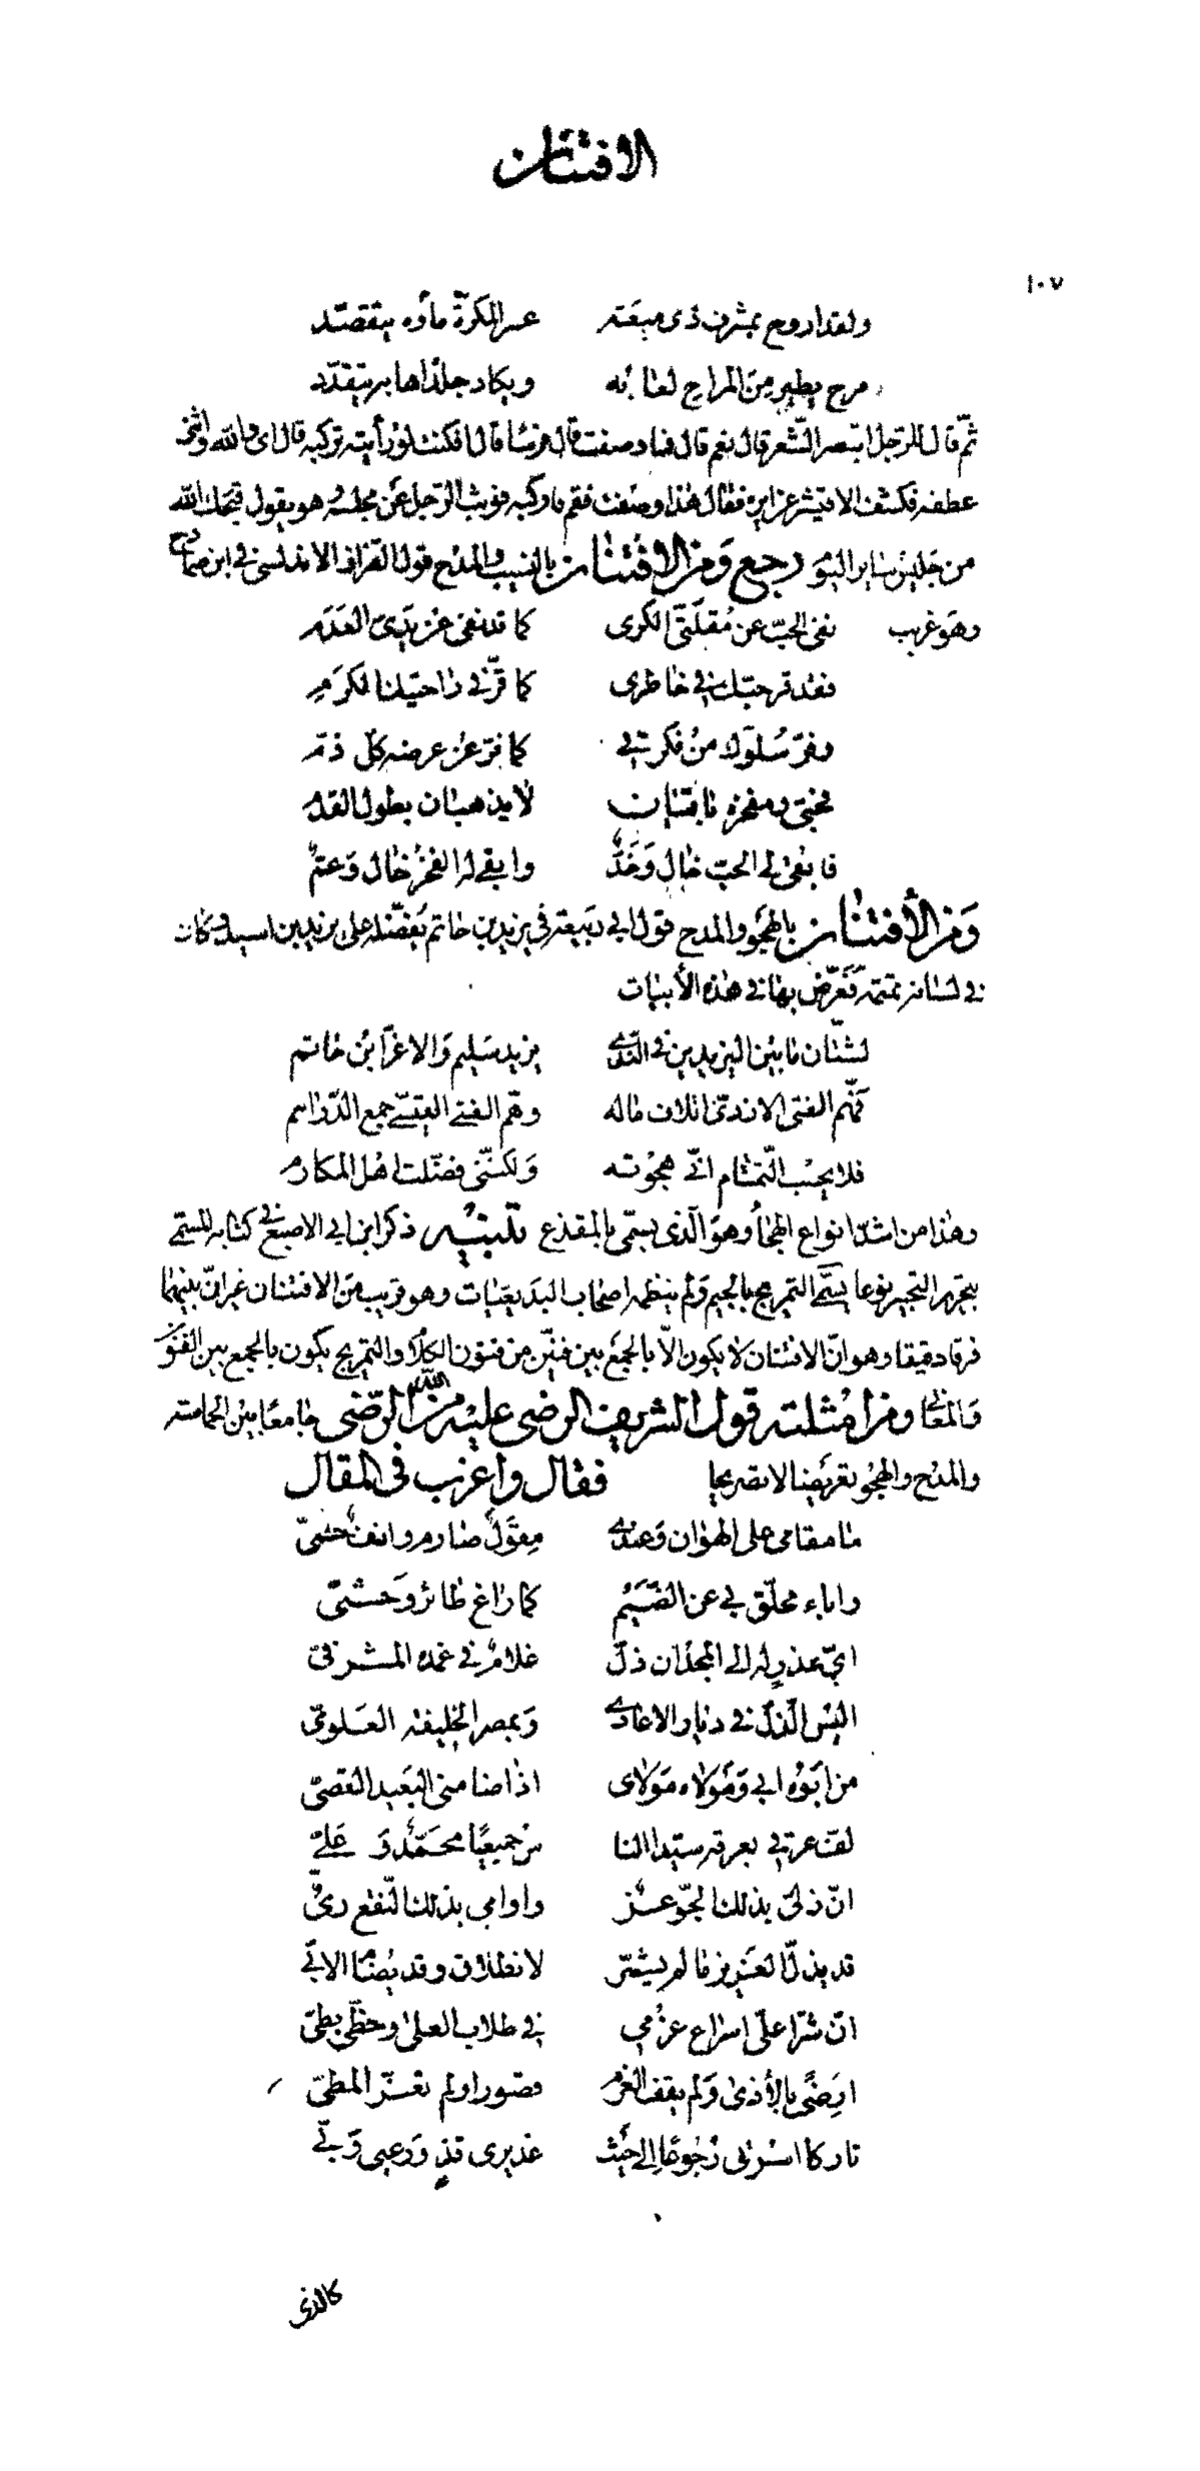 الافتنان
١٠٧
ولقد اروح بمشرف ذى ميعته عسر المكرّة ماؤه يتفصّد
مرح يطير من المراح لعابه ويكاد جلد اهابه يتقدّد
ثمّ قال للرّجل ابتصر الشّعر قال نعم قال فما وصفت قال فرسا قال افكنت لو رأيته تركبه قال اى والله واثنى
عطفه فكشف الاقيشر عن ايره فقال هذا وصفت فقم فاركبه فوثب الرّجل عن مجلسه وهو يقول قبحك الله
من جليس سایر اليوم رجع وَمن الافتنان بالنسيب والمدح قول القزاز الاندلسى فى ابن صمادح
وهو غريب نفى الحبّ عن مُقلَتىّ الكرى كما قد نفى عن يَدىّ العَدَم
فقد قر حبّك فى خاطرى كما قرّ فى راحتيك الكرم
وفرّ سُلوّك من فكرتى كما فرّ عن عرضه كلّ ذمّ
فحبّى ومفخره باقيان لا يذهبان بطول القدم
فابقى لى الحبّ خال وَخَدٌّ وابقى له الفخرُ خال وَعمّ
وَمن الأفتنان بالهجو والمدح قول ابى ربيعة فى يزيد بن حاتم يُفضّله على يزيد بن اسيد وكان
فى لسانه تمتمة فَعَرّض بها فى هذه الأبيات
لشتّان ما بين اليزيدين فى النّدى يزيد سليم وَالاغرّ ابن حاتم
فهّم الفتى الازدىّ اتلاف ماله وهّم الفتى القيسىّ جمع الدّراهم
فلا يحسب التّمتام انّى هجوته وَلكنّنى فضّلت اهل المكارم
وهذا من اشدّ انواع الهجاء وهو الّذى يسمّى بالمقذع تنبيه ذكر ابن ابى الاصبع فى كتابه المسمّى
بتحرير التحبير نوعا يسمّى التمريج بالجيم وَلم ينظمه اصحاب البديعيات وهو قريب من الافتنان غير انّ بينهما
فرقا دقيقا وهو انّ الافتنان لا يكون الّا بالجمع بين فنّين من فنون الكلام والتمريج يكون بالجمع بين الفنون
وَالمعانى ومن امثلته قول الشريف الرضى عليه من الله الرّضى جامعا بين الحماسة
والمدح والهجو تعريضا لا تصريحا فقال واعزب فى المقال
ما مقامى على الهوان وَعندى مِقوَل صارم وانف حمىّ
واباء محلّق بى عن الضّيم كما راغ طائر وَحشىّ
اىّ عذر له الى المجد ان ذلّ غلام فى غمده المشرفى
البس الذّل فى ديار الاعادى وَبمصر الخليفة العلوىّ
من ابَوْه ابى وَمَولاه مَولاى اذا ضامنى البَعيد القصىّ
لفّ عرقى بعرقه سيّدا النا س جميعا محمّد وَ علىّ
انّ ذلّى بذلك الجوّ عزّ واوامى بذلك النّقع رىّ
قد يذلّ العزيز ما لم يشمّر لانطلاق وقد يُضام الابىّ
انّ شرّا علىّ اسراع عزمى فى طلاب العلى وحظّى بطىّ
ارضى بالأذى وَلم يقف العزم قصورا ولم تعزّ المطىّ
تاركا اسرتى رجوعا إلى حيث غديرى قذٍ وَرعيى وَبىّ
كالذى